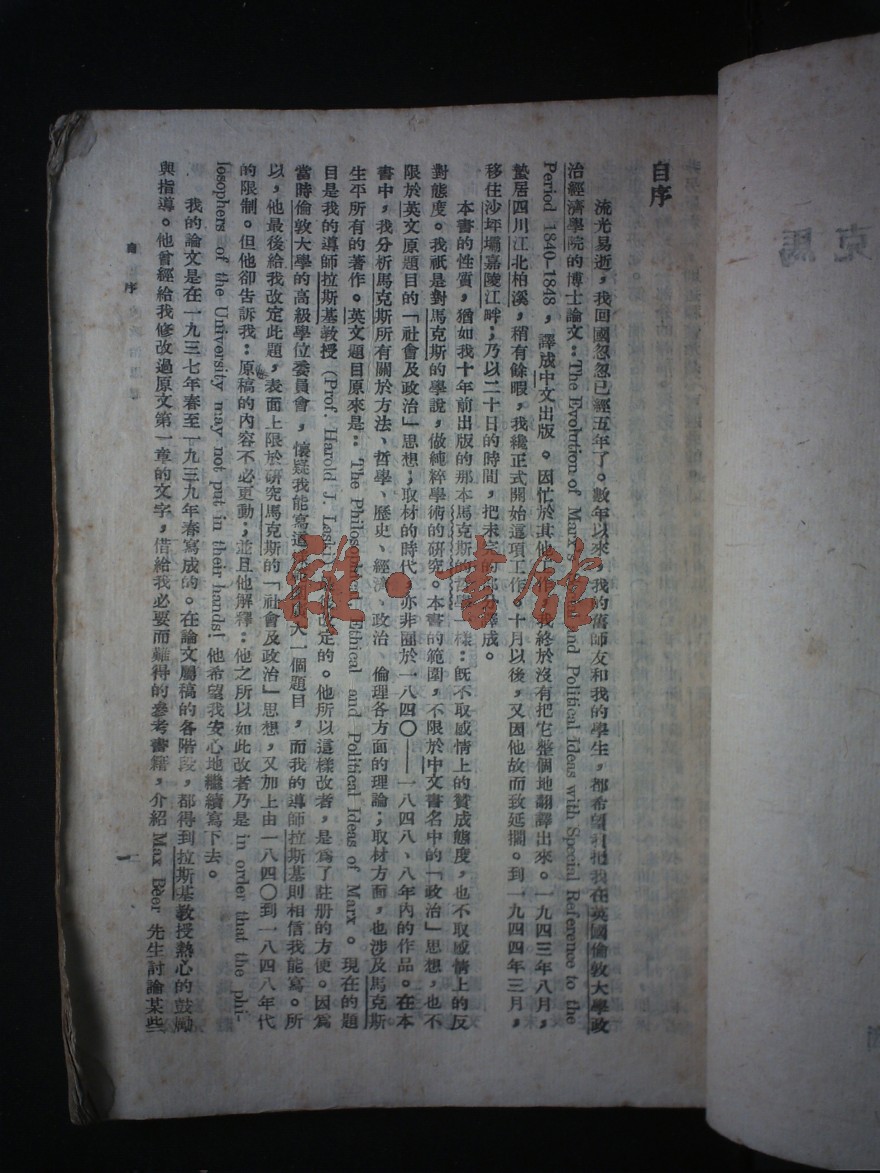 自序
流光易逝，我回國忽忽已經五年了。數年以來，我的舊師友和我的學生，都希望我把我在英國倫敦大學政
治經濟學院的博士論文：The Evolution of Marx's and Political Ideas with Special Reference to the
Period 1840-1848，譯成中文出版。因忙於其他工作，我終於沒有把它整個地翻譯出來。一九四三年八月，
蟄居四川江北柏溪，稍有餘暇，我纔正式開始這項工作。十月以後，又因他故而致延擱。到一九四四年三月，
移住沙坪壩嘉陵江畔；乃以二十日的時間，把未完的部分譯成。
本書的性質，猶如我十年前出版的那本馬克斯的哲學一樣：既不取感情上的贊成態度，也不取感情上的反
對態度。我祇是對馬克斯的學說，做純粹學術的研究。本書的範圍，不限於中文書名中的「政治」思想，也不
限於英文原題目的「社會及政治」思想；取材的時代，亦非囿於一八四〇——一八四八、八年內的作品。在本
書中，我分析馬克斯所有關於方法、哲學、歷史、經濟、政治、倫理各方面的理論；取材方面，也涉及馬克斯
生平所有的著作。英文題目原來是：The Philosophical, Ethical and Political Ideas of Marx。現在的題
目是我的導師拉斯基教授 (Prof. Harold J. Laski) 改定的。他所以這樣改者，是爲了註册的方便。因爲
當時倫敦大學的高級學位委員會，懷疑我能寫這大一個題目，而我的導師拉斯基則相信我能寫。所
以，他最後給我改定此題，表面上限於研究馬克斯的「社會及政治」思想，又加上由一八四〇到一八四八年代
的限制。但他卻告訴我：原稿的內容不必更動；並且他解釋：他之所以如此改者乃是 in order that the phi-
losophers of the University may not put in their hands! 他希望我安心地繼續寫下去。
我的論文是在一九三七年春至一九三九年春寫成的。在論文屬稿的各階段，都得到拉斯基教授熱心的鼓勵
與指導。他曾經給我修改過原文第一章的文字，借給我必要而難得的參考書籍，介紹 Max Beer 先生討論某些
自序
一
馬
克
雜·書館